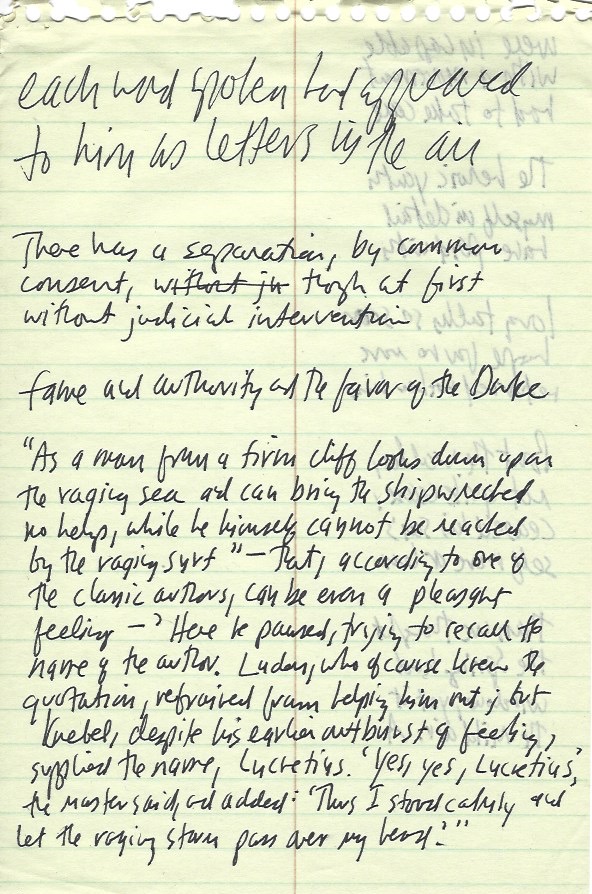 each word spoken had appeared
to him as letters in the air
There was a separation, by common
consent, without ju though at first
without judicial intervention
fame and authority and the favor of the Duke
"As a man from a firm cliff looks down upon
the raging sea and can bring the shipwrecked
no help, while he himself cannot be reached
by the raging surf" – that, according to one of
the classic authors, can be even a pleasant
feeling – ' Here he paused, trying to recall the
name of the author. Luden, who of course knew the
quotation, refrained from helping him out; but
Knebel, despite his earlier outburst of feeling,
supplied the name, Lucretius. 'Yes, yes, Lucretius',
the master said, and added: 'Thus I stood calmly and
let the raging storm pass over my head.'"